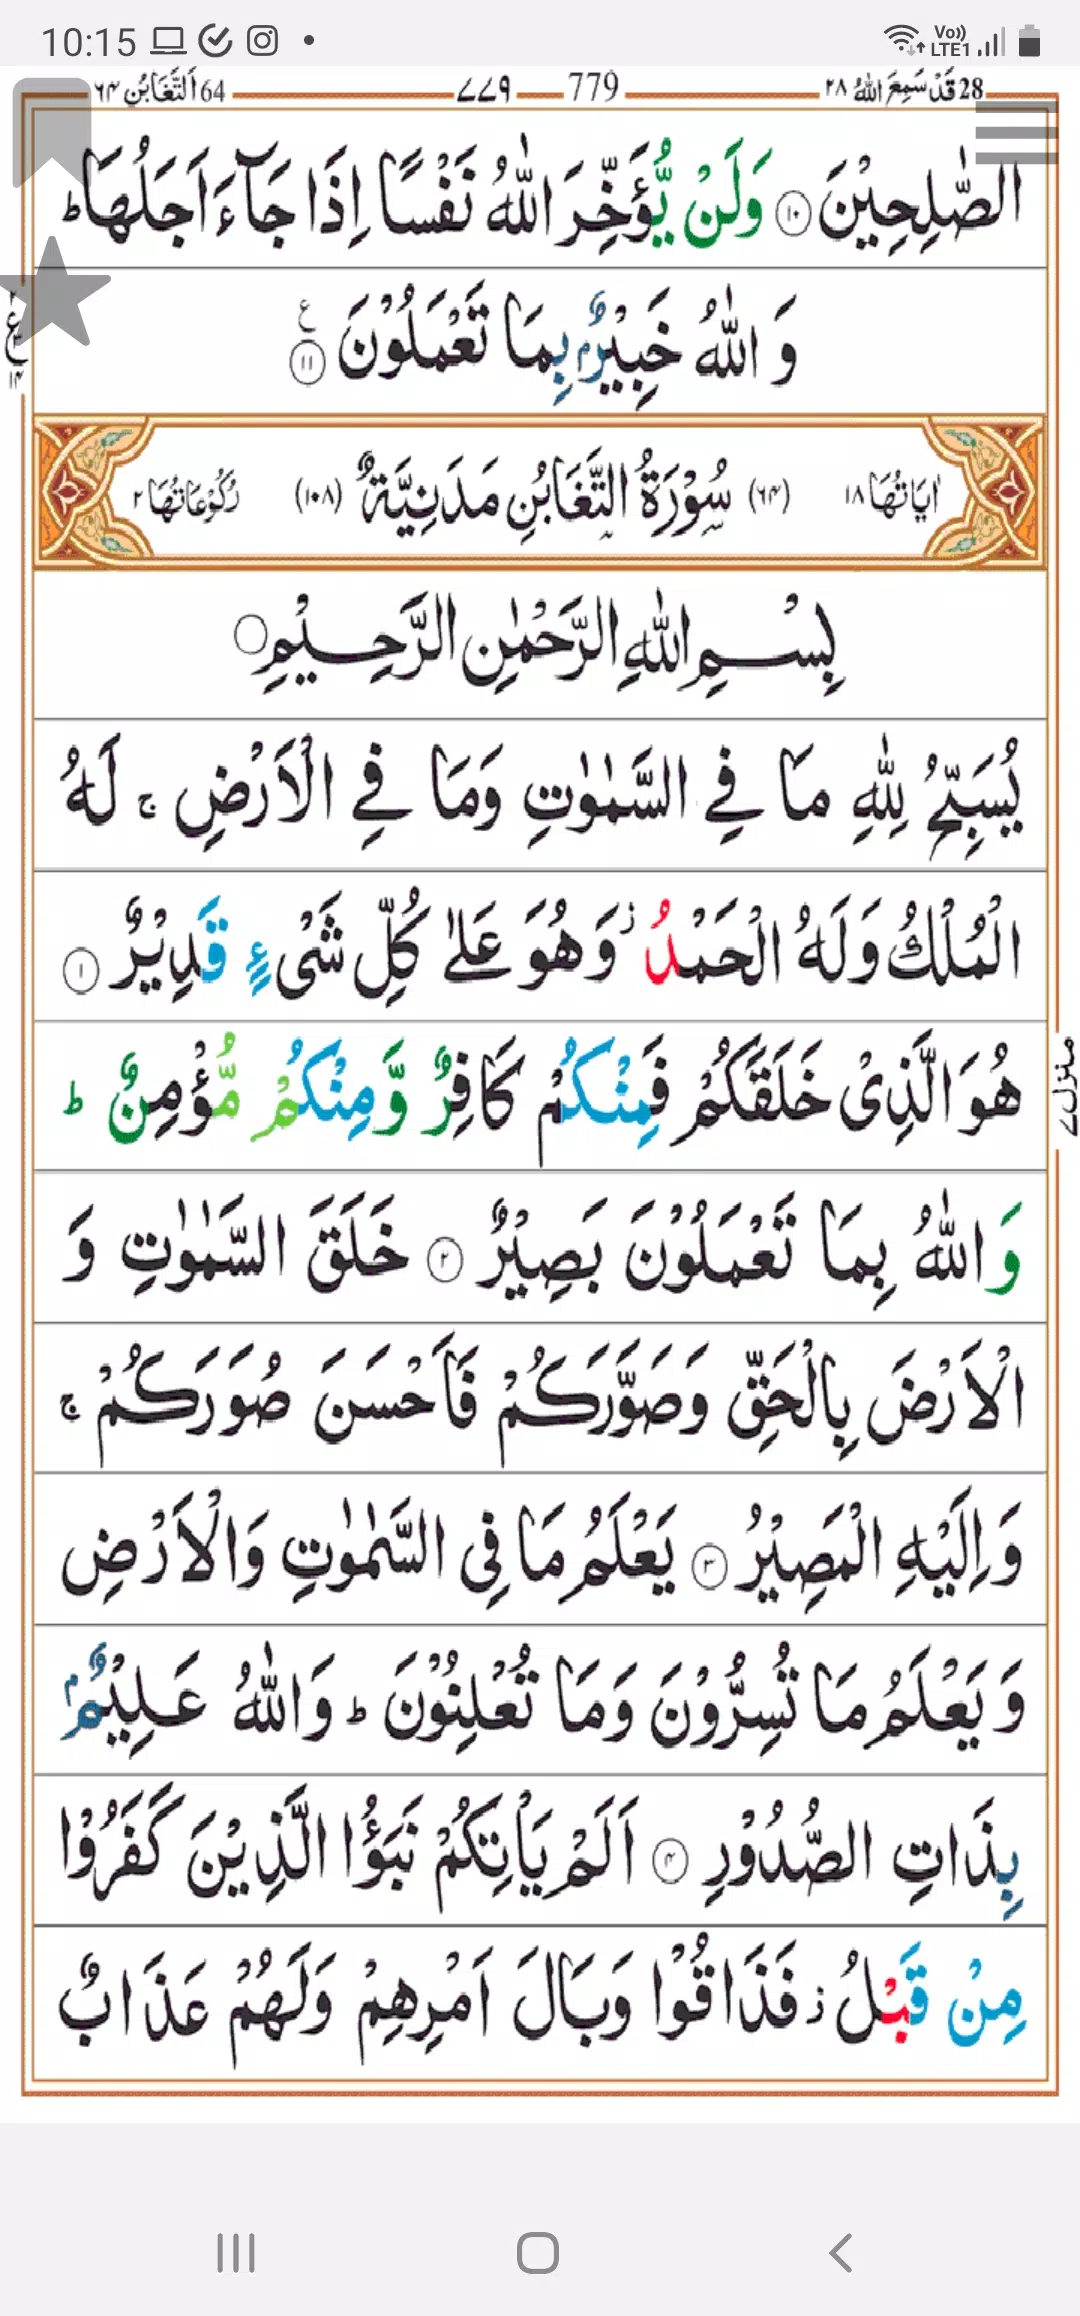 10:15 Vo)) LTE1
28 قَدْ سَمِعَ اللّٰهُ ۲۸ 779 ۷۷۹ 64 اَلتَّغَابُن ۶۴
الصّٰلِحِيْنَ ۝۱۰ وَلَنْ يُّؤَخِّرَ اللّٰهُ نَفْسًا اِذَا جَآءَ اَجَلُهَا ؕ
وَ اللّٰهُ خَبِيْرٌۢ بِمَا تَعْمَلُوْنَ ۝۱۱ ع
ع ۱۴
اٰيَاتُهَا ۱۸ (۶۴) سُوْرَةُ التَّغَابُنِ مَدَنِيَّةٌ (۱۰۸) رُكُوْعَاتُهَا ۲
بِسْمِ اللّٰهِ الرَّحْمٰنِ الرَّحِيْمِ ۝
يُسَبِّحُ لِلّٰهِ مَا فِي السَّمٰوٰتِ وَمَا فِي الْاَرْضِ ۚ لَهُ
الْمُلْكُ وَلَهُ الْحَمْدُ ؗ وَهُوَ عَلٰى كُلِّ شَىْءٍ قَدِيْرٌ ۝۱
هُوَ الَّذِىْ خَلَقَكُمْ فَمِنْكُمْ كَافِرٌ وَّمِنْكُمْ مُّؤْمِنٌ ؕ
منزل ۷
وَاللّٰهُ بِمَا تَعْمَلُوْنَ بَصِيْرٌ ۝۲ خَلَقَ السَّمٰوٰتِ وَ
الْاَرْضَ بِالْحَقِّ وَصَوَّرَكُمْ فَاَحْسَنَ صُوَرَكُمْ ۚ
وَاِلَيْهِ الْمَصِيْرُ ۝۳ يَعْلَمُ مَا فِى السَّمٰوٰتِ وَالْاَرْضِ
وَ يَعْلَمُ مَا تُسِرُّوْنَ وَمَا تُعْلِنُوْنَ ؕ وَاللّٰهُ عَلِيْمٌۢ
بِذَاتِ الصُّدُوْرِ ۝۴ اَلَمْ يَاْتِكُمْ نَبَؤُا الَّذِيْنَ كَفَرُوْا
مِنْ قَبْلُ ؗ فَذَاقُوْا وَبَالَ اَمْرِهِمْ وَلَهُمْ عَذَابٌ